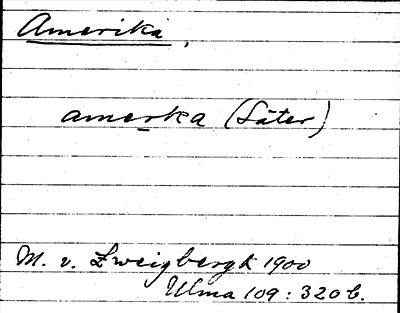 Amerika,
amerka (Säter)
M. v. Zweigbergk 1900
Ulma 109 : 320 b.